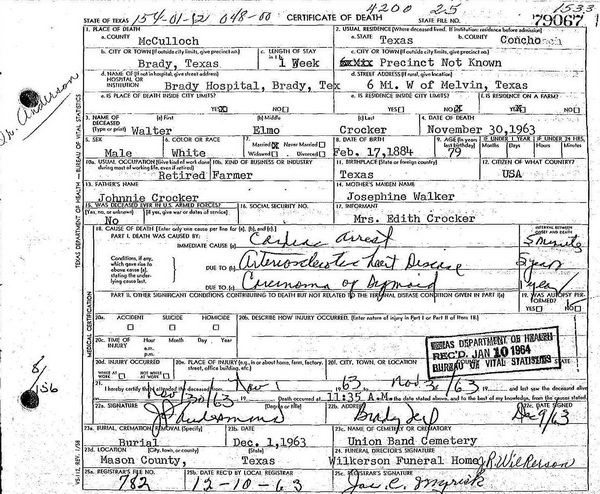 4200 25 1533
STATE OF TEXAS 154-01-82 048-00 CERTIFICATE OF DEATH 79067
1. PLACE OF DEATH 2. USUAL RESIDENCE (Where deceased lived. If institution: residence before admission)
a. COUNTY McCulloch a. STATE Texas b. COUNTY Concho
b. CITY OR TOWN (If outside city limits, give precinct no.) c. LENGTH OF STAY c. CITY OR TOWN (If outside city limits, give precinct no.)
Brady, Texas 1 Week Precinct Not Known
d. NAME OF (If not in hospital, give street address) HOSPITAL OR INSTITUTION d. STREET ADDRESS (If rural, give location)
Brady Hospital, Brady, Tex 6 Mi. W of Melvin, Texas
e. IS PLACE OF DEATH INSIDE CITY LIMITS? YES X NO e. IS RESIDENCE INSIDE CITY LIMITS? YES NO X f. IS RESIDENCE ON A FARM? YES NO
3. NAME OF DECEASED (Type or print) (a) First (b) Middle (c) Last 4. DATE OF DEATH
Walter Elmo Crocker November 30, 1963
5. SEX 6. COLOR OR RACE 7. Married Never Married Widowed Divorced 8. DATE OF BIRTH 9. AGE (In years last birthday) IF UNDER 1 YEAR IF UNDER 24 HRS.
Male White Feb. 17, 1884 79
10a. USUAL OCCUPATION (Give kind of work done during most of working life, even if retired) 10b. KIND OF BUSINESS OR INDUSTRY 11. BIRTHPLACE (State or foreign country) 12. CITIZEN OF WHAT COUNTRY?
Retired Farmer Texas USA
13. FATHER'S NAME 14. MOTHER'S MAIDEN NAME
Johnnie Crocker Josephine Walker
15. WAS DECEASED EVER IN U.S. ARMED FORCES? (Yes, no, or unknown) (If yes, give war or dates of service) 16. SOCIAL SECURITY NO. 17. INFORMANT
No Mrs. Edith Crocker
18. CAUSE OF DEATH [Enter only one cause per line for (a), (b), and (c).] INTERVAL BETWEEN ONSET AND DEATH
PART I. DEATH WAS CAUSED BY:
IMMEDIATE CAUSE (a) Cardiac Arrest 5 minutes
Conditions, if any, which gave rise to above cause (a), stating the underlying cause last.
DUE TO (b) Arteriosclerotic Heart Disease 5 years
DUE TO (c) Carcinoma of Sigmoid 1 year
PART II. OTHER SIGNIFICANT CONDITIONS CONTRIBUTING TO DEATH BUT NOT RELATED TO THE TERMINAL DISEASE CONDITION GIVEN IN PART I(a) 19. WAS AUTOPSY PERFORMED? YES NO
20a. ACCIDENT SUICIDE HOMICIDE 20b. DESCRIBE HOW INJURY OCCURRED. (Enter nature of injury in Part I or Part II of item 18.)
20c. TIME OF INJURY Hour Month Day Year a.m. p.m.
TEXAS DEPARTMENT OF HEALTH
REC'D. JAN 10 1964
BUREAU OF VITAL STATISTICS
20d. INJURY OCCURRED WHILE AT WORK NOT WHILE AT WORK 20e. PLACE OF INJURY (e.g., in or about home, farm, factory, street, office building, etc.) 20f. CITY, TOWN, OR LOCATION COUNTY STATE
21. I hereby certify that I attended the deceased from Nov 1 63 Nov 30/63 and last saw the deceased alive
Nov/30/63 Death occurred at 11:35 A.M. on the date stated above, and to the best of my knowledge, from the causes stated.
22a. SIGNATURE (Degree or title) 22b. ADDRESS 22c. DATE SIGNED
Brady Tex Dec 9/63
23a. BURIAL, CREMATION, REMOVAL (Specify) 23b. DATE 23c. NAME OF CEMETERY OR CREMATORY
Burial Dec. 1, 1963 Union Band Cemetery
23d. LOCATION (City, town, or county) (State) 24. FUNERAL DIRECTOR'S SIGNATURE
Mason County, Texas Wilkerson Funeral Home J.R. Wilkerson
25a. REGISTRAR'S FILE NO. 25b. DATE REC'D BY LOCAL REGISTRAR 25c. REGISTRAR'S SIGNATURE
782 12-10-63 Jas. C. Myrick
TEXAS DEPARTMENT OF HEALTH — BUREAU OF VITAL STATISTICS
MEDICAL CERTIFICATION
VS-112, REV. 1/58
Dr. Anderson
8/156